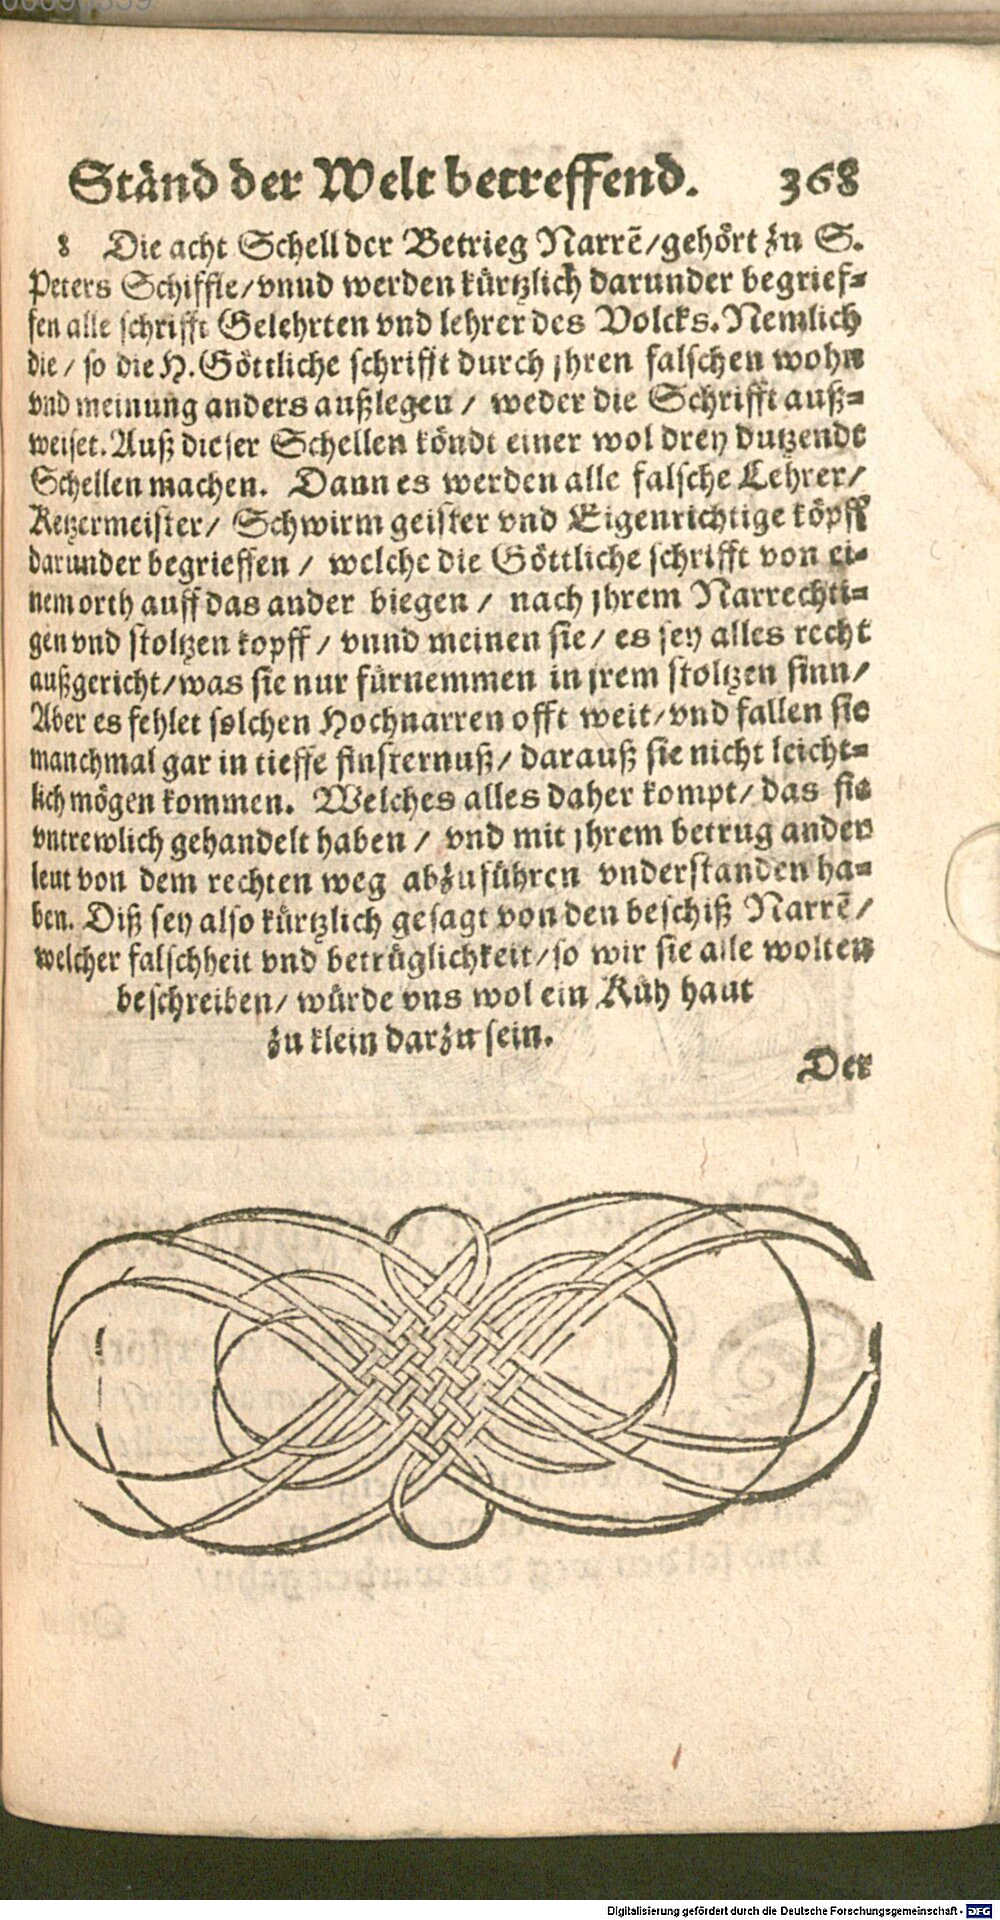 Ständ der Welt betreffend. 368
8 Die acht Schell der Betrieg Narrẽ/gehört zu S.
Peters Schiffle/vnnd werden kürtzlich darunder begrief-
fen alle schrifft Gelehrten vnd lehrer des Volcks. Nemlich
die/ so die H. Göttliche schrifft durch jhren falschen wohn
vnd meinung anders außlegen/ weder die Schrifft auß-
weiset. Auß dieser Schellen köndt einer wol drey dutzendt
Schellen machen. Dann es werden alle falsche Lehrer/
Ketzermeister/ Schwirm geister vnd Eigenrichtige köpff
darunder begrieffen/ welche die Göttliche schrifft von ei-
nem orth auff das ander biegen/ nach jhrem Narrechti-
gen vnd stoltzen kopff/ vnnd meinen sie/ es sey alles recht
außgericht/was sie nur fürnemmen in jrem stoltzen sinn/
Aber es fehlet solchen Hochnarren offt weit/vnd fallen sie
manchmal gar in tieffe finsternuß/ darauß sie nicht leicht-
lich mögen kommen. Welches alles daher kompt/ das sie
vntrewlich gehandelt haben/ vnd mit jhrem betrug ander
leut von dem rechten weg abzuführen vnderstanden ha-
ben. Diß sey also kürtzlich gesagt von den beschiß Narrẽ/
welcher falschheit vnd betrüglichkeit/so wir sie alle wolten
beschreiben/ würde vns wol ein Küh haut
zu klein darzu sein.
Der
Digitalisierung gefördert durch die Deutsche Forschungsgemeinschaft - DFG